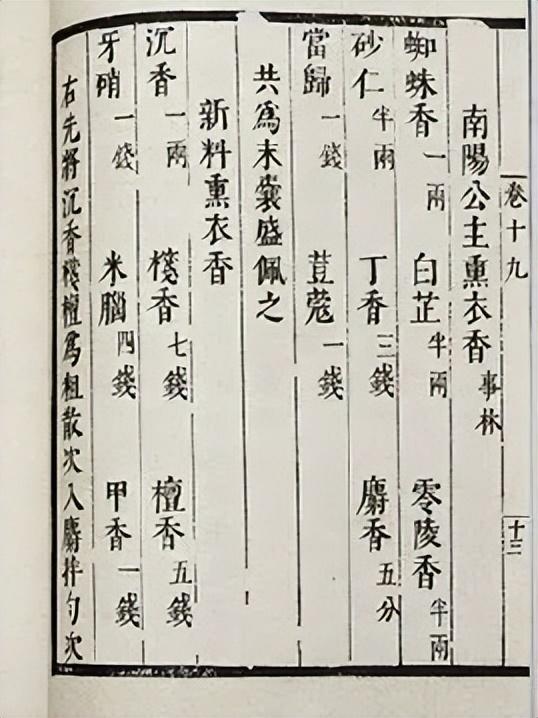 卷十九
十三
南陽公主熏衣香 事林
蜘蛛香一兩 白芷半兩 零陵香半兩
砂仁半兩 丁香三錢 麝香五分
當歸一錢 荳蔻一錢
共爲末囊盛佩之
新料熏衣香
沉香一兩 棧香七錢 檀香五錢
牙硝一錢 米腦四錢 甲香一錢
右先將沉香棧檀爲粗散次入麝拌勻次